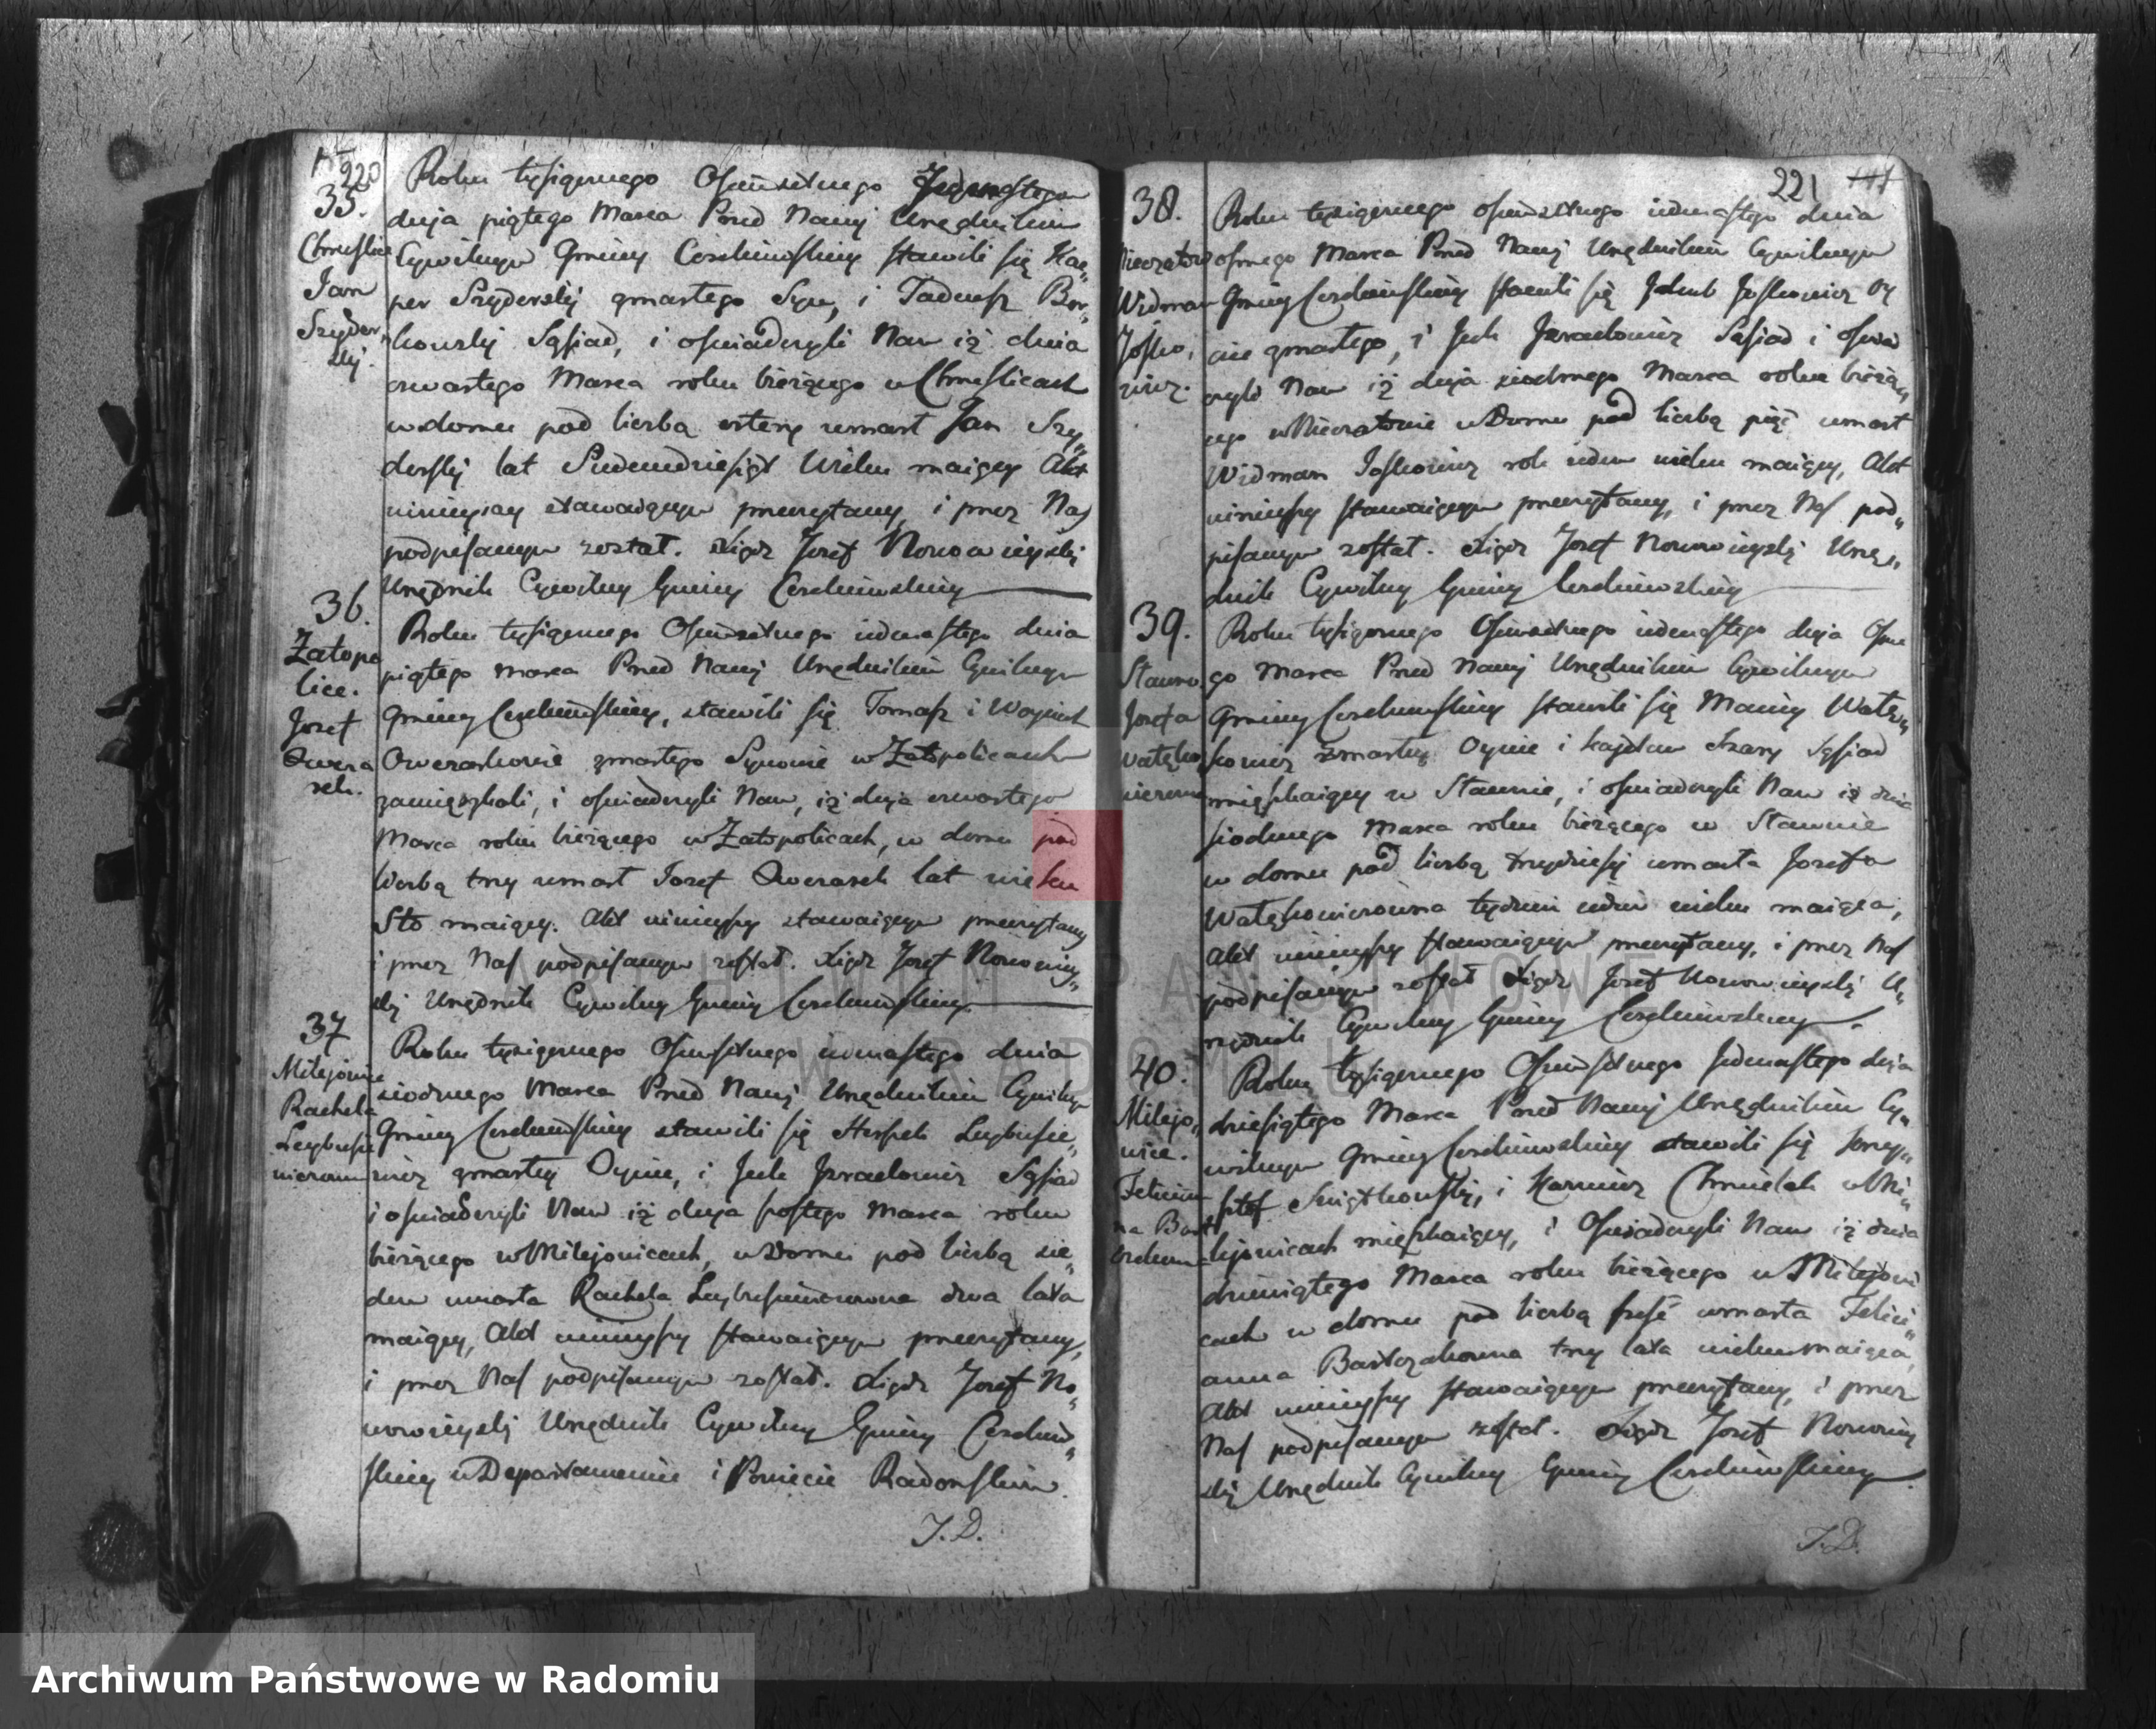 220
35.
Chruslice
Jan
Szyder„
ski.
Roku tysięcznego Osmsetnego Jedenastego
dnia piątego Marca Przed Nami Urzędnikiem
Cywilnym Gminy Cerekiewskiey stawili się Kac„
per Szyderski zmarłego Syn, i Tadeusz Bor„
kowski Sąsiad, i oswiadczyli Nam iż dnia
czwartego Marca roku bieżącego w Chruslicach
w domu pod liczbą cztery umarł Jan Szy„
derski lat Siedemdziesiąt Wieku maiący Akt
ninieyszy stawaiącym przeczytany, i przez Nas
podpisanym został. Xiądz Jozef Nowowieyski
Urzędnik Cywilny Gminy Cerekiewskiey
36.
Zatopo
lice.
Jozef
Owcza
rek.
Roku tysięcznego Osmsetnego iedenastego dnia
piątego marca Przed Nami Urzędnikiem Cywilnym
Gminy Cerekiewskiey, stawili się Tomasz i Woyciech
Owczarkowie zmarłego Synowie w Zatopolicach
zamieszkali, i oswiadczyli Nam, iż dnia czwartego
Marca roku bieżącego w Zatopolicach, w domu pod
liczbą trzy umarł Jozef Owczarek lat wieku
Sto maiący. Akt ninieyszy stawaiącym przeczytany
i przez Nas podpisanym został. Xiądz Jozef Nowowiey„
ski Urzędnik Cywilny Gminy Cerekiewskiey.
37
Milejowice
Rachela
Leybusie
wiczowna
Roku tysięcznego Osmsetnego iedenastego dnia
siodmego Marca Przed Nami Urzędnikiem Cywilnym
Gminy Cerekiewskiey stawili się Herszek Leybusie„
wicz zmarłey Oyciec, i Jcek Jzraelowicz Sąsiad
i oswiadczyli Nam iż dnia szostego Marca roku
bieżącego w Milejowicach, w Domu pod liczbą sie„
dem umarła Rachela Leybusiewiczowna dwa lata
maiący, Akt ninieyszy stawaiącym przeczytany,
i przez Nas podpisanym został. Xiądz Jozef No„
wowieyski Urzędnik Cywilny Gminy Cerekiew„
skiey w Departamencie i Powiecie Radomskim.
J.D.
221
38.
Widman
Josko„
wicz.
Roku tysięcznego osmsetnego iedenastego dnia
osmego Marca Przed Nami Urzędnikiem Cywilnym
Gminy Cerekiewskiey stawili się Jakub Joskowicz Oy
ciec zmarłego, i Jcek Jzraelowicz Sąsiad i oswiad
czyli Nam iż dnia siodmego Marca roku bieżą„
cego w Domu pod liczbą pięć umarł
Widman Joskowicz rok ieden wieku maiący, Akt
ninieyszy stawaiącym przeczytany, i przez Nas pod„
pisanym został. Xiądz Jozef Nowowieyski Urzę„
dnik Cywilny Gminy Cerekiewskiey
39.
Stawno
Jozefa
Watęko
wiczowna
Roku tysięcznego Osmsetnego iedenastego dnia Osme
go Marca Przed Nami Urzędnikiem Cywilnym
Gminy Cerekiewskiey stawili się Maciey Watęk„
kowicz zmarłey Oyciec i Kajetan Szary Sąsiad
mieszkaiący w Stawnie, i oswiadczyli Nam iż dnia
siodmego Marca roku bieżącego w Stawnie
w domu pod liczbą trzydziesci umarła Jozefa
Watękowiczowna tydzien ieden wieku maiąca,
Akt ninieyszy stawaiącym przeczytany, i przez Nas
podpisanym został Xiądz Jozef Nowowieyski U„
rzędnik Cywilny Gminy Cerekiewskiey.
40.
Milejo„
wice.
Felician
na Bart
czakowna
Roku tysięcznego Osmsetnego Jedenastego dnia
dziesiątego Marca Przed Nami Urzędnikiem Cy„
wilnym Gminy Cerekiewskiey stawili się Krzy„
sztof Swiątkowski, i Kazmierz Chmielak w Mi„
lejowicach mieszkaiący, i Oswiadczyli Nam iż dnia
dziewiątego Marca roku bieżącego w Milejowi
cach w domu pod liczbą szesć umarła Felici„
anna Bartczakowna trzy lata wieku maiąca,
Akt ninieyszy stawaiącym przeczytany, i przez
Nas podpisanym został. Xiądz Jozef Nowowiey
ski Urzędnik Cywilny Gminy Cerekiewskiey.
J.D.
ARCHIWUM PAŃSTWOWE
W RADOMIU
Archiwum Państwowe w Radomiu